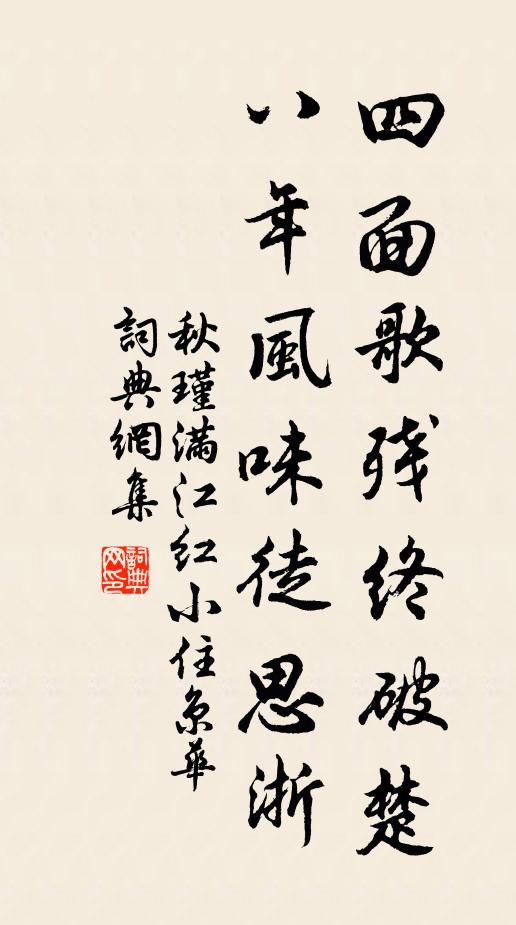 四面歌残终破楚
八年風味徒思浙
秋瑾满江红小住京華
詞典網集
詞典网印